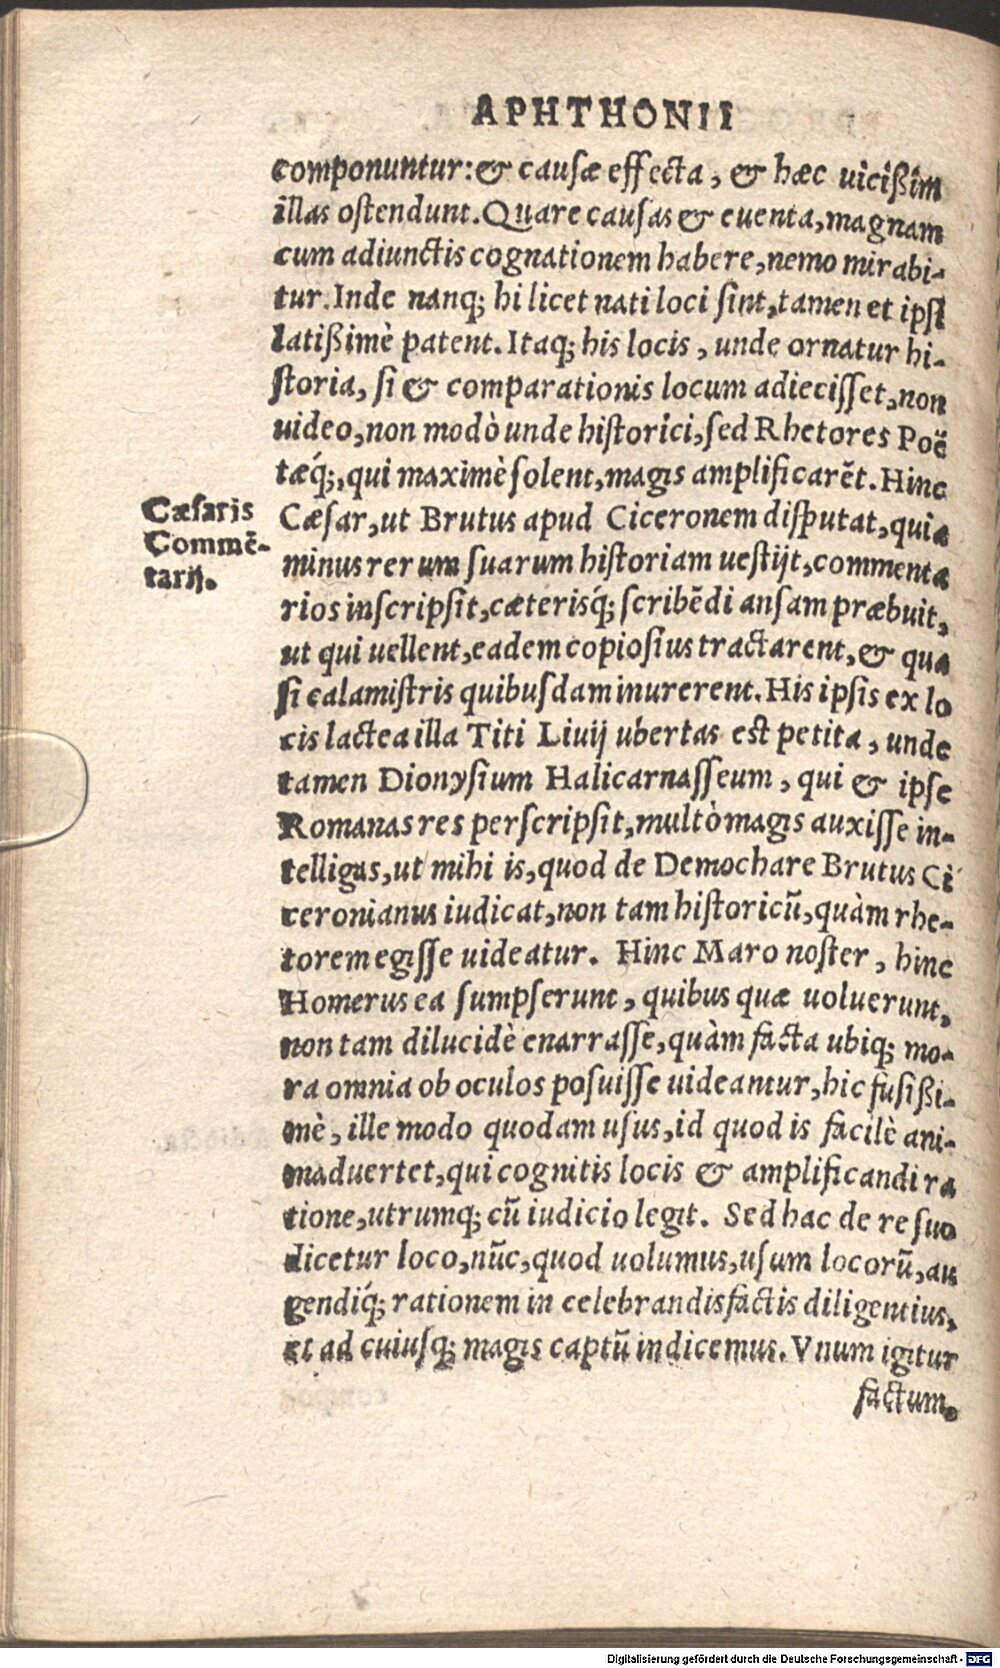 APHTHONII
componuntur: & causæ effecta, & hæc uicißim
illas ostendunt. Quare causas & euenta, magnam
cum adiunctis cognationem habere, nemo mirabi-
tur. Inde nanq; hi licet nati loci sint, tamen et ipsi
latißimè patent. Itaq; his locis, unde ornatur hi-
storia, si & comparationis locum adiecisset, non
uideo, non modò unde historici, sed Rhetores Poë
tæq́;, qui maximè solent, magis amplificarēt. Hinc
Cæsaris
Commē-
tarij.
Cæsar, ut Brutus apud Ciceronem disputat, quia
minus rerum suarum historiam uestijt, commenta
rios inscripsit, cæterisq́; scribēdi ansam præbuit,
ut qui uellent, eadem copiosius tractarent, & qua
si calamistris quibusdam inurerent. His ipsis ex lo
cis lactea illa Titi Liuij ubertas est petita, unde
tamen Dionysium Halicarnasseum, qui & ipse
Romanas res perscripsit, multò magis auxisse in-
telligas, ut mihi is, quod de Demochare Brutus Ci
ceronianus iudicat, non tam historicū, quàm rhe-
torem egisse uideatur. Hinc Maro noster, hinc
Homerus ea sumpserunt, quibus quæ uoluerunt,
non tam dilucidè enarrasse, quàm facta ubiq; mo-
ra omnia ob oculos posuisse uideantur, hic fusißi-
mè, ille modo quodam usus, id quod is facilè ani-
maduertet, qui cognitis locis & amplificandi ra
tione, utrumq; cū iudicio legit. Sed hac de re suo
dicetur loco, nūc, quod uolumus, usum locorū, au
gendiq́; rationem in celebrandis factis diligentius,
et ad cuiusq; magis captū indicemus. Vnum igitur
factum.
Digitalisierung gefördert durch die Deutsche Forschungsgemeinschaft - DFG